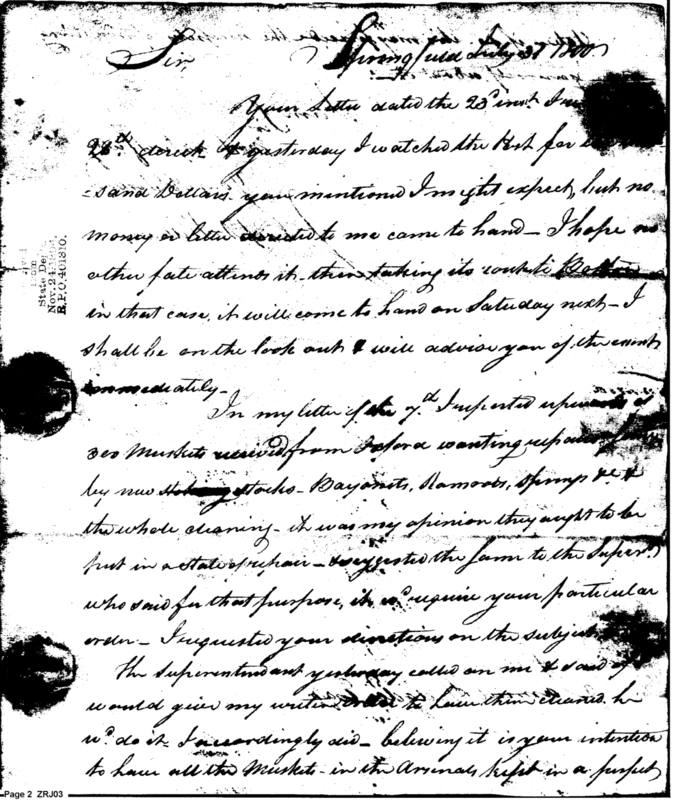 Sir,
Springfield July 31 1800
Your Letter dated the 23d inst. I
28th. & yesterday I watched the Post for
sand Dollars you mentioned I might expect, but no
money or letter directed to me came to hand - I hope no
other fate attends it - then taking its route to Boston
in that case, it will come to hand on Saturday next - I
shall be on the look out & will advise you of the event
immediately -
In my letter of the 7d. I reported upwards of
300 Muskets received from Oxford wanting repairs
by new stocks - Bayonets, Ramrods, springs &c. &
the whole cleaning - it was my opinion they ought to be
put in a state of repair - & suggested the same to the Super.
who said for that purpose, it wd. require your particular
order - I requested your directions on the subject
the Superentendant yesterday called on me & said if I
would give my writen order to have them cleaned he
wd. do it - I accordingly did - believing it is your intention
to have all the Muskets in the Arsenals kept in a perfect
State De
Nov. 24
R.P.O. 401810.
Page 2 ZRJ03